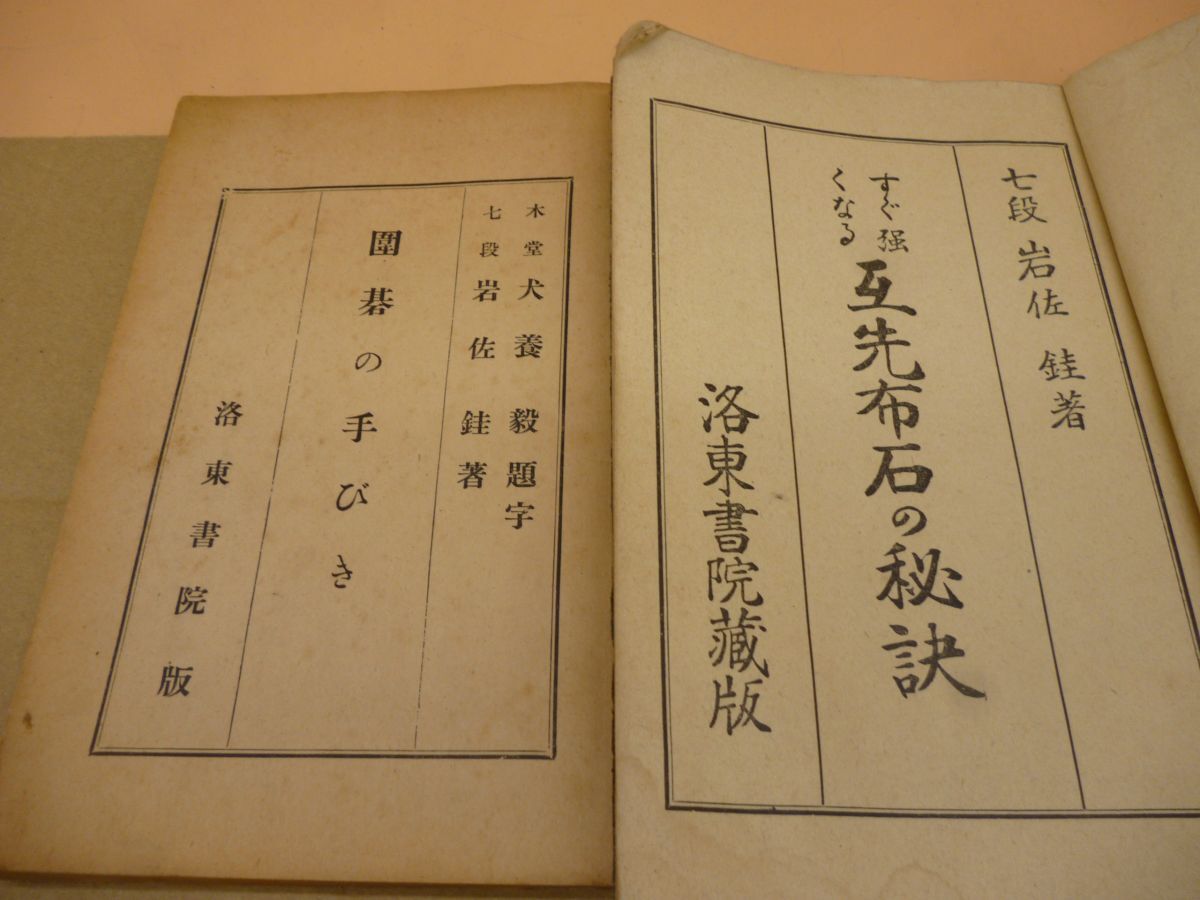 七段 岩佐 銈著
すぐ强
くなる
互先布石の秘訣
洛東書院藏版
木堂 犬養毅題字
七段 岩佐銈著
圍碁の手びき
洛東書院版